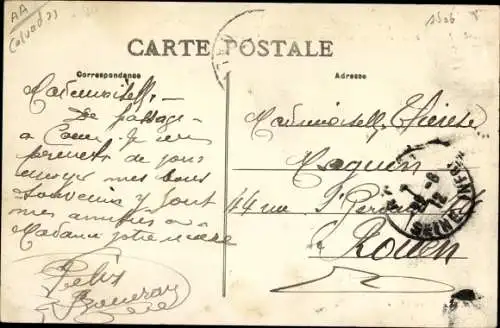 AA
Calvados
1506
CARTE POSTALE
Correspondance
Adresse
Mademoiselle
De passage
a Caen je me
permets de vous
envoyer mes bons
souvenirs
mes amitiés a
Madame votre mère
Felix
Mademoiselle Thérèse
44 rue St
Rouen
SEINE